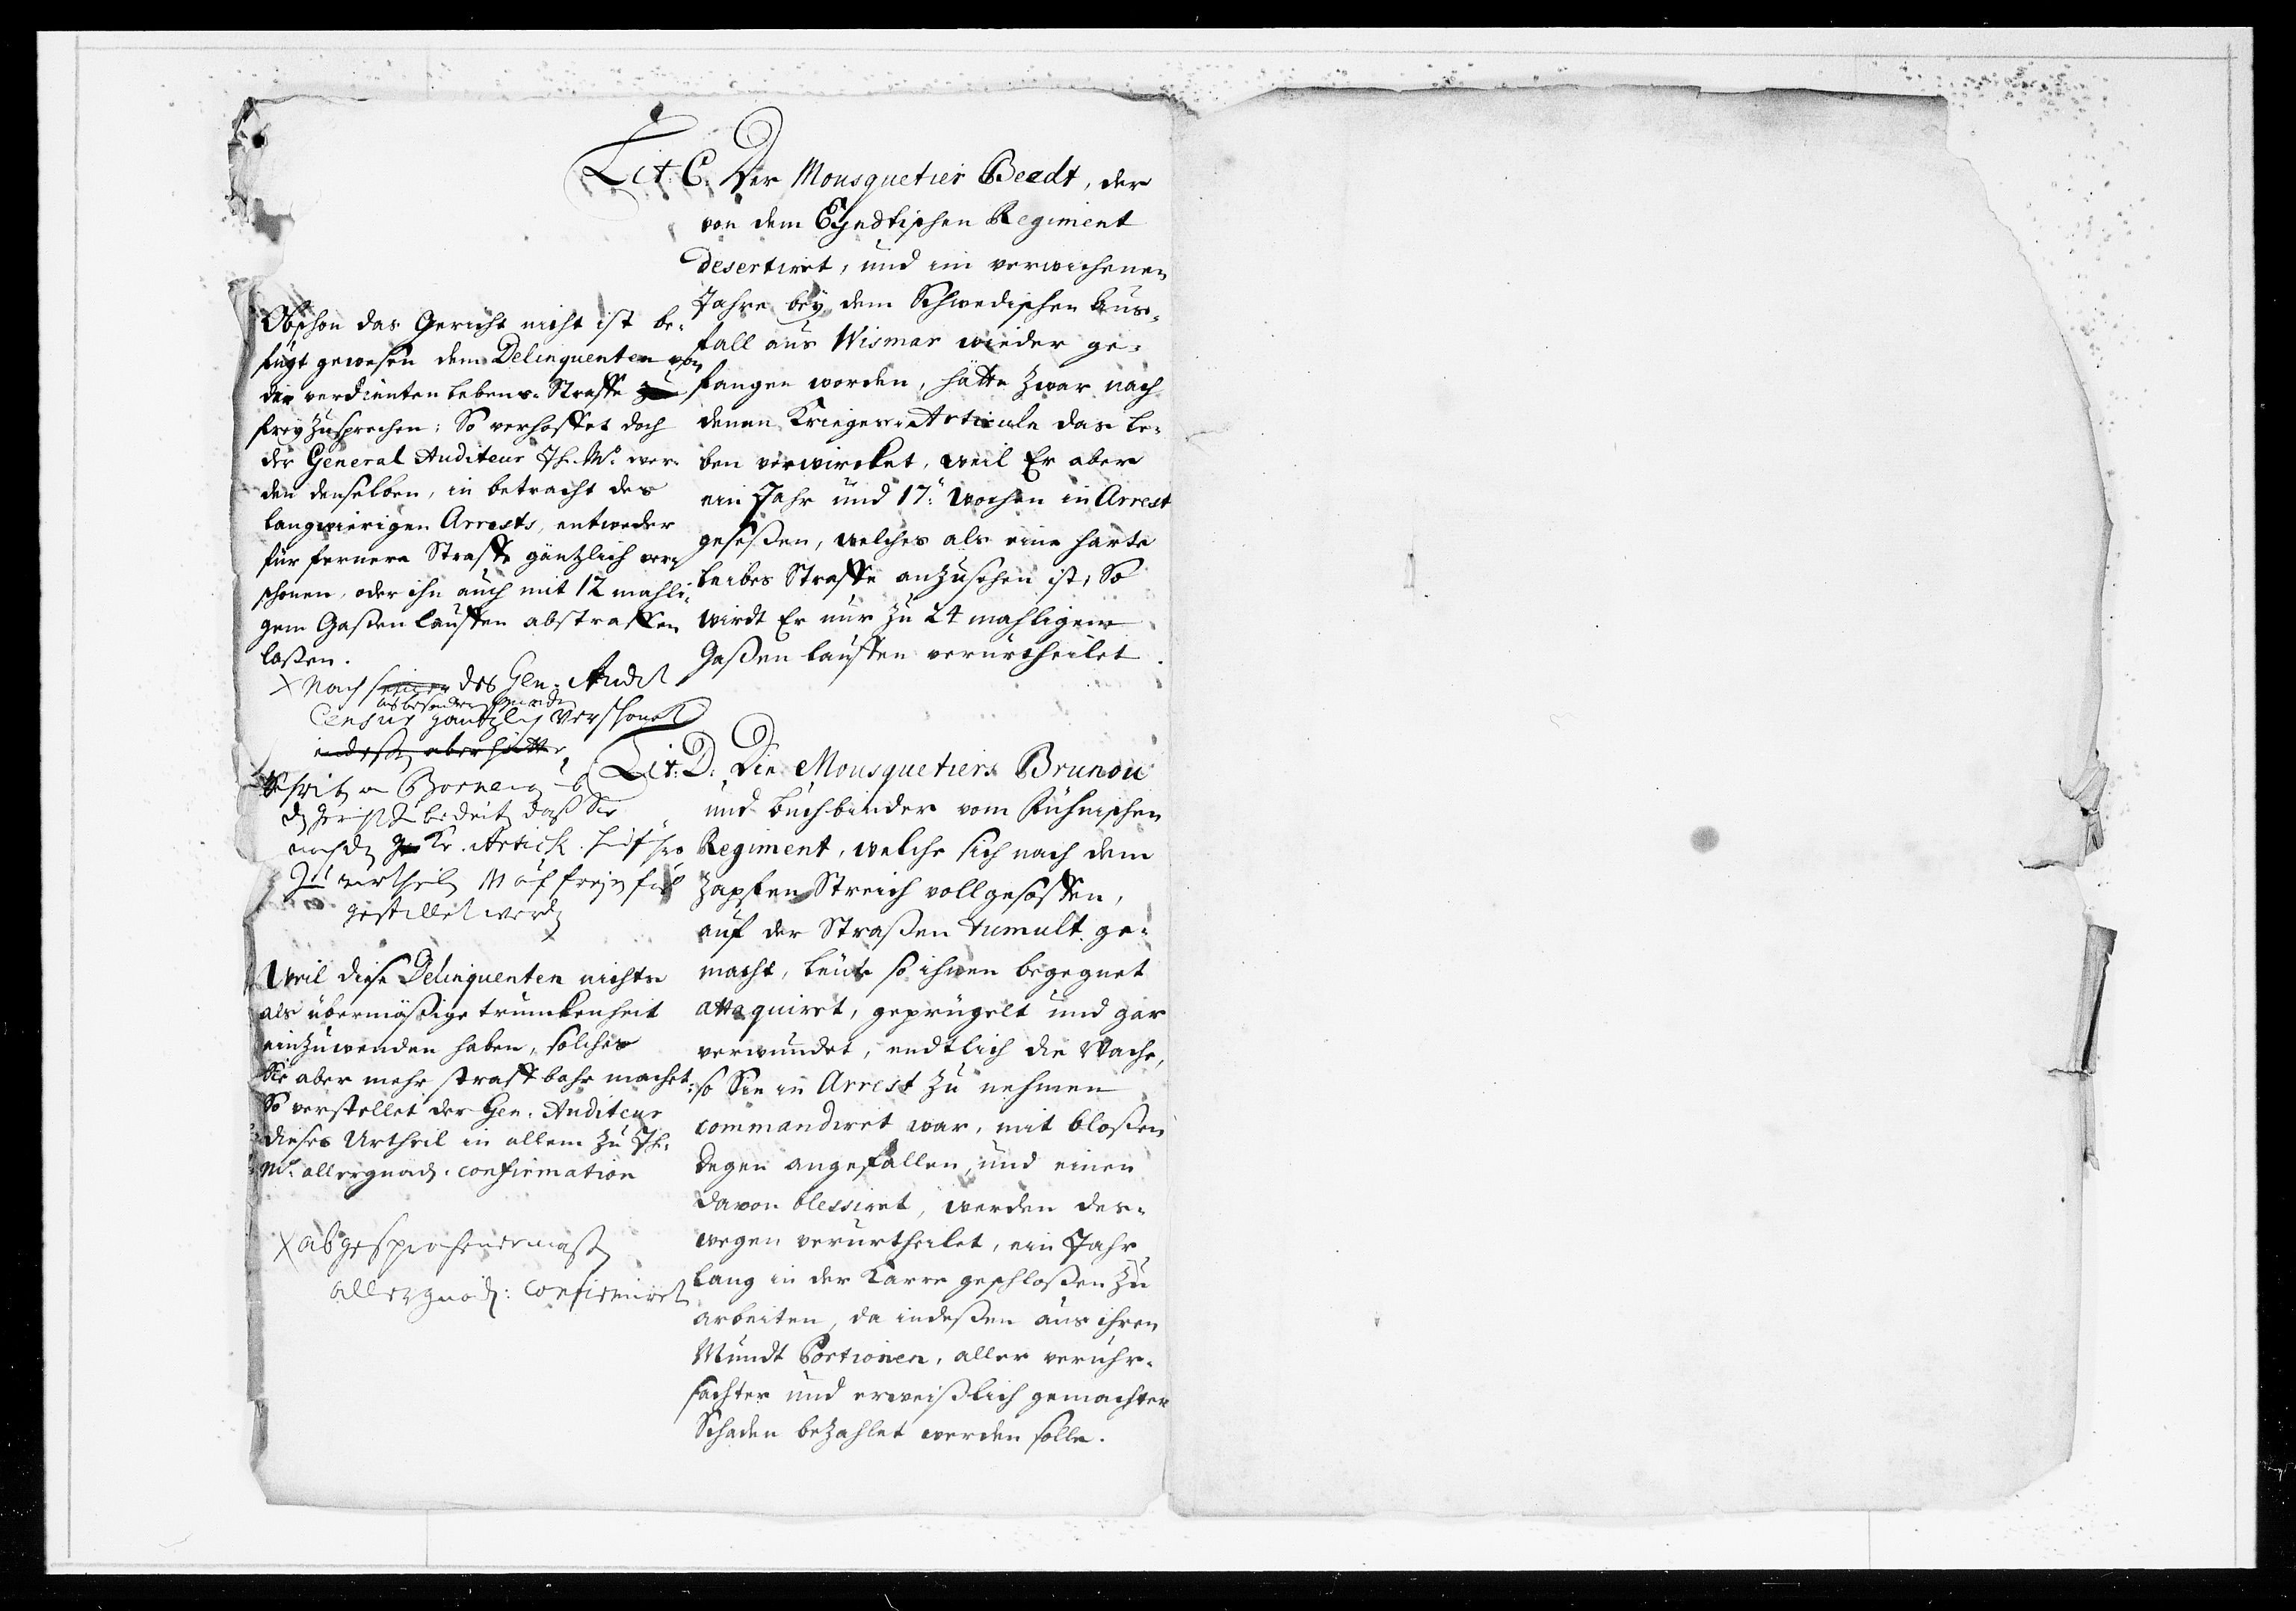 Lit C. Der Mousquetier Beedt, der
von dem Eyndtischen Regiment
desertiret, und im verwichenen
Jahre bey dem Schwedischen Aus-
fall aus Wismar wieder ge-
fangen worden, hätte zwar nach
denen Krieges-Articuln das Le-
ben verwircket, weil Er aber
ein Jahr und 17. Wochen in Arrest
gesessen, welches als eine harte
Leibes Straffe anzusehen ist, So
wirdt Er nur zu 24 mahligem
Gaßen lauffen verurtheilet.
Obschon das Gericht nicht ist be-
fugt gewesen dem Delinquenten von
der verdienten Lebens-Straffe
frey zusprechen: So verhoffet doch
der General Auditeur Ih. M. wer-
den denselben, in betracht des
langwierigen Arrests, entweder
für fernere Straffe gäntzlich ver-
schonen, oder ihn auch mit 12 mahli-
gem Gaßen lauffen abstraffen
laßen.
X Nach des Gen. Audit
Censur gäntzlich verschonet
indeßen aber hätte
daß Sie
nach den Kr. Artick.
zu urtheilen
gestellet werden
Lit. D. Die Mousquetiers Brunou
und Buchbinder vom Kühnischen
Regiment, welche sich nach dem
Zapfen Streich voll gesoffen,
auf der Straßen tumult ge-
macht, Leute so ihnen begegnet
attaquiret, geprügelt und gar
verwundet, endtlich die Wache,
so Sie in Arrest zu nehmen
commandiret war, mit bloßen
Degen angefallen, und einen
davon blessiret, werden des-
wegen verurtheilet, ein Jahr
lang in der Karre geschloßen zu
arbeiten, da indeßen aus ihren
Mundt Portionen, aller veruhr-
sachter und erweißlich gemachter
Schaden bezahlet werden solle.
Weil diese Delinquenten nichts
als übermäßige trunckenheit
einzuwenden haben, solches
Sie aber mehr straffbahr machet:
So verstellet der Gen. Auditeur
dieses Urtheil in allem zu Ih.
M. allergnäd. confirmation
X abgesprochenermaßen
allergnäd: confirmiret